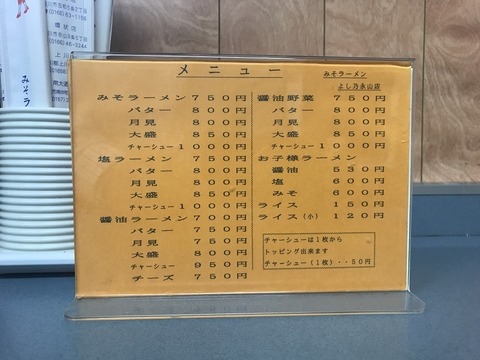 メニュー
みそラーメン
よし乃永山店
みそラーメン 750円
バター 800円
月見 800円
大盛 850円
チャーシュー 1000円
塩ラーメン 750円
バター 800円
月見 800円
大盛 850円
チャーシュー 1000円
醤油ラーメン 700円
バター 750円
月見 750円
大盛 800円
チャーシュー 950円
チーズ 750円
醤油野菜 750円
バター 800円
月見 800円
大盛 850円
チャーシュー 1000円
お子様ラーメン
醤油 530円
塩 600円
みそ 600円
ライス 150円
ライス(小) 120円
チャーシューは1枚から
トッピング出来ます
チャーシュー(1枚)・・50円
みそラ